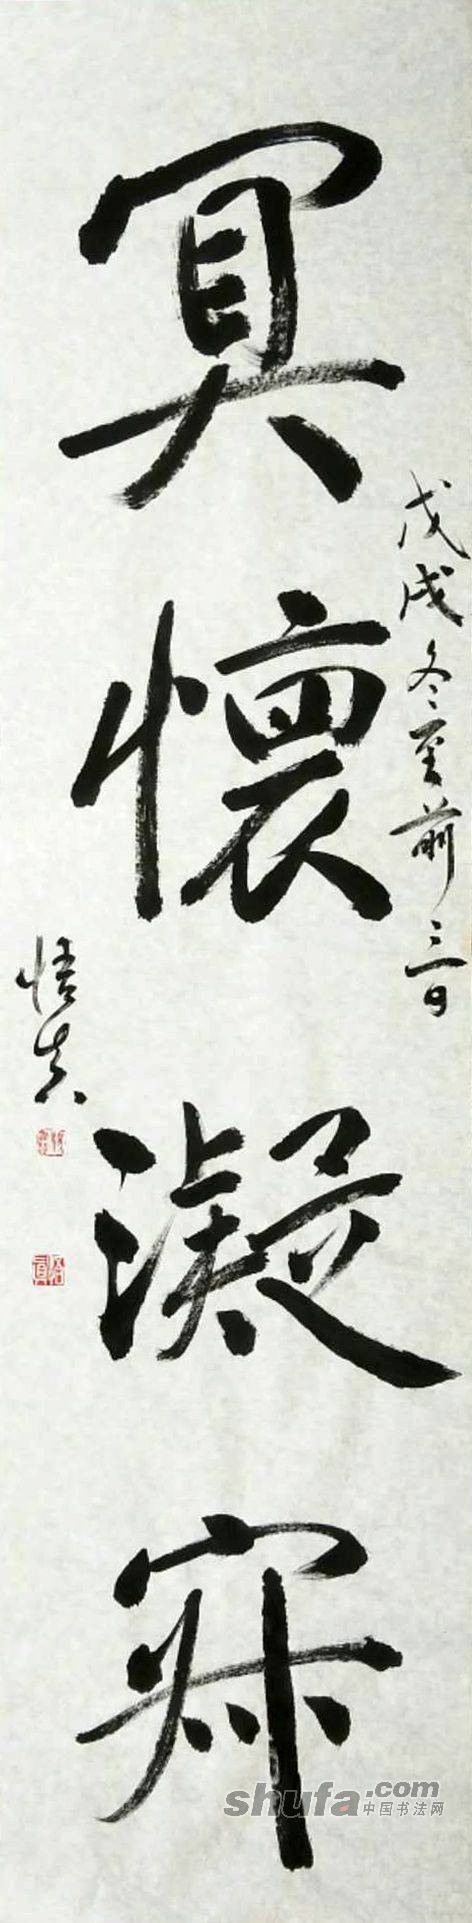 冥懷凝寂
戊戌冬至前三日
悟真
shufa.com
中国书法网